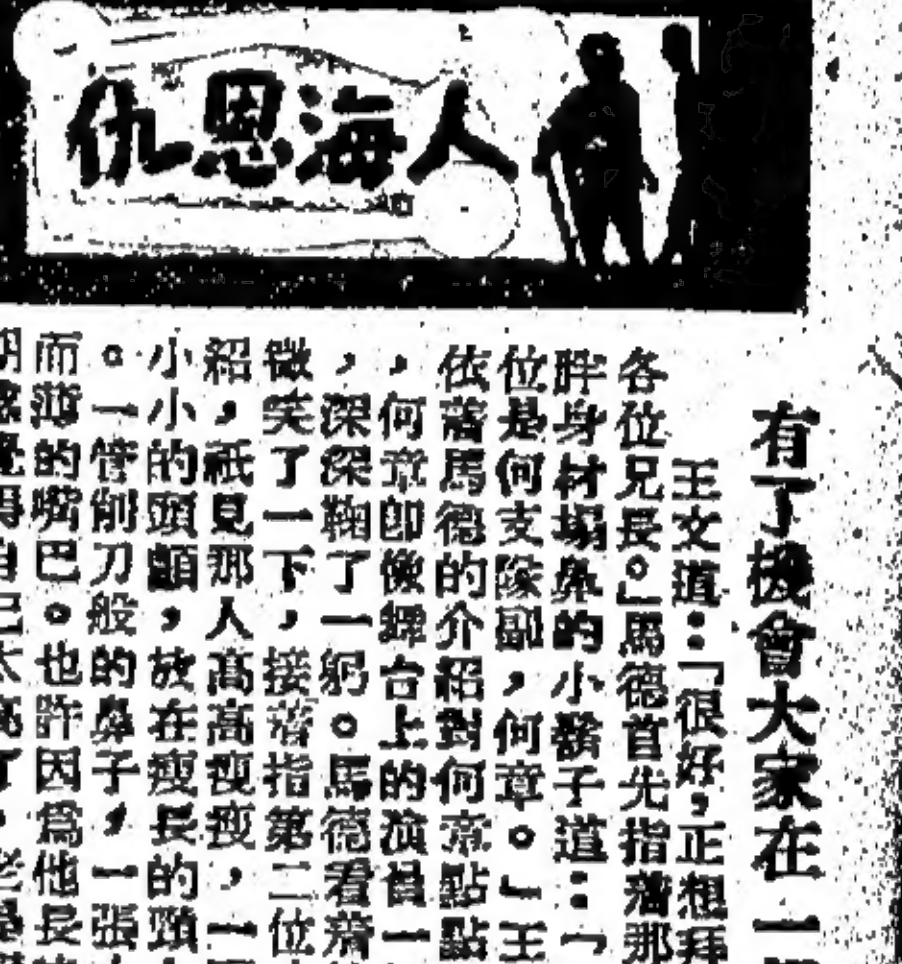 人海恩仇
有了機會大家在一
王文道：「很好，正想拜
各位兄長。」馬德首先指着那
胖身材塌鼻的小鬍子道：「
位是何支隊副，何章。」王
依着馬德的介紹對何章點點
，何章卽像舞台上的演員一
，深深鞠了一躬。馬德看着
微笑了一下，接着指第二位
紹，祇見那人高高瘦瘦，一
小小的頭顱，放在瘦長的頸
。一管削刀般的鼻子，一張
而薄的嘴巴。也許因爲他長
覺得自己太高了，老是